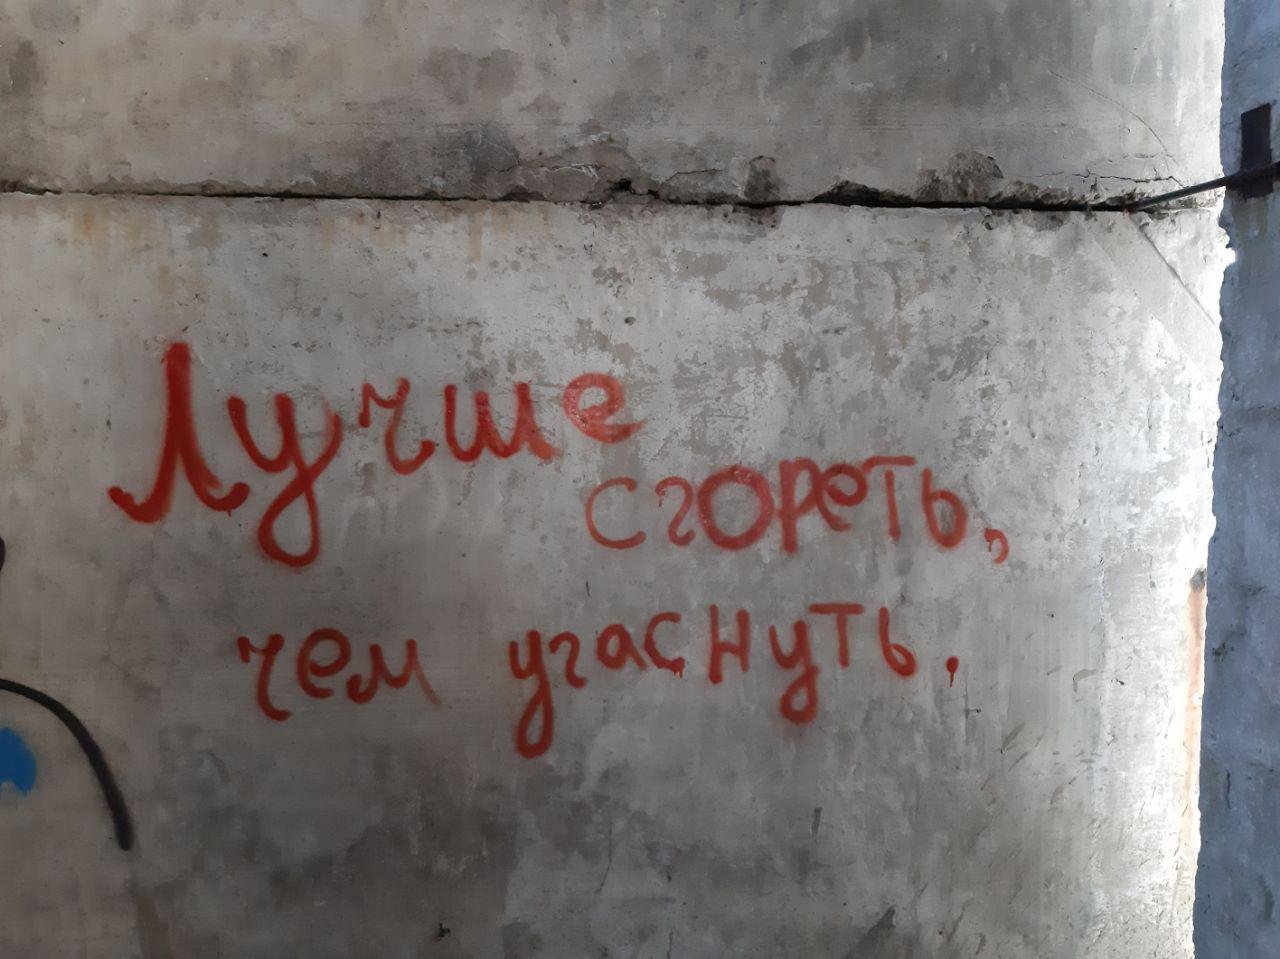 Лучше
сгореть,
чем угаснуть.